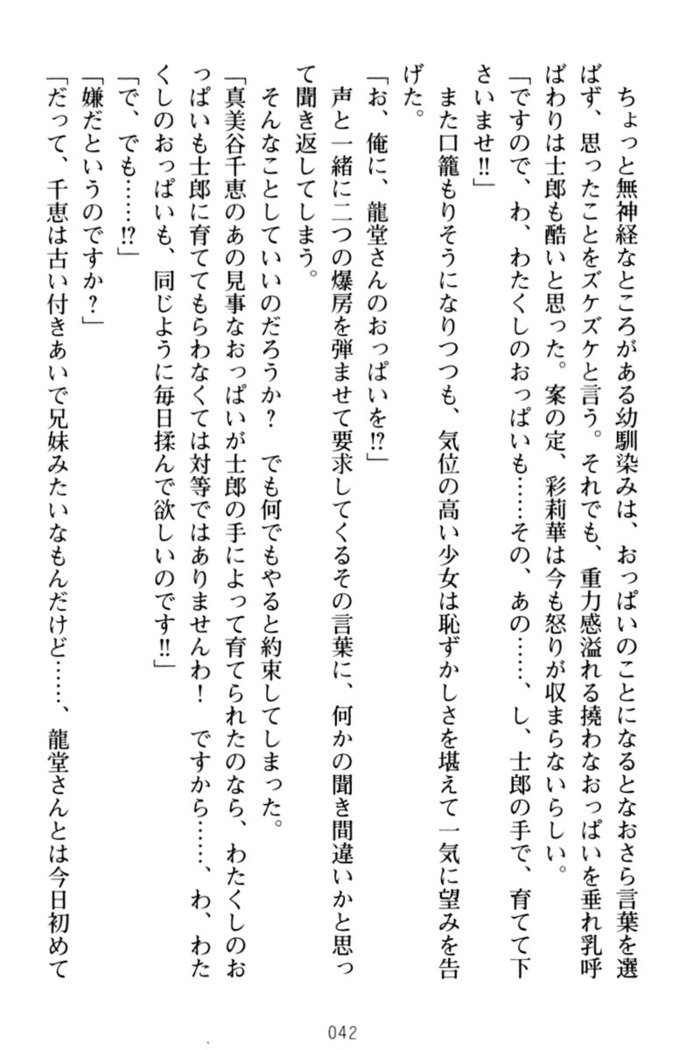 ちょっと無神経なところがある幼馴染みは、おっぱいのことになるとなおさら言葉を選
ばず、思ったことをズケズケと言う。それでも、重力感溢れる撓わなおっぱいを垂れ乳呼
ばわりは士郎も酷いと思った。案の定、彩莉華は今も怒りが収まらないらしい。
「ですので、わ、わたくしのおっぱいも……その、あの……、し、士郎の手で、育てて下
さいませ!!」
また口籠もりそうになりつつも、気位の高い少女は恥ずかしさを堪えて一気に望みを告
げた。
「お、俺に、龍堂さんのおっぱいを!?」
声と一緒に二つの爆房を弾ませて要求してくるその言葉に、何かの聞き間違いかと思っ
て聞き返してしまう。
そんなことしていいのだろうか？　でも何でもやると約束してしまった。
「真美谷千恵のあの見事なおっぱいが士郎の手によって育てられたのなら、わたくしのお
っぱいも士郎に育ててもらわなくては対等ではありませんわ！　ですから……、わ、わた
くしのおっぱいも、同じように毎日揉んで欲しいのです!!」
「で、でも……!?」
「嫌だというのですか？」
「だって、千恵は古い付きあいで兄妹みたいなもんだけど……、龍堂さんとは今日初めて
042